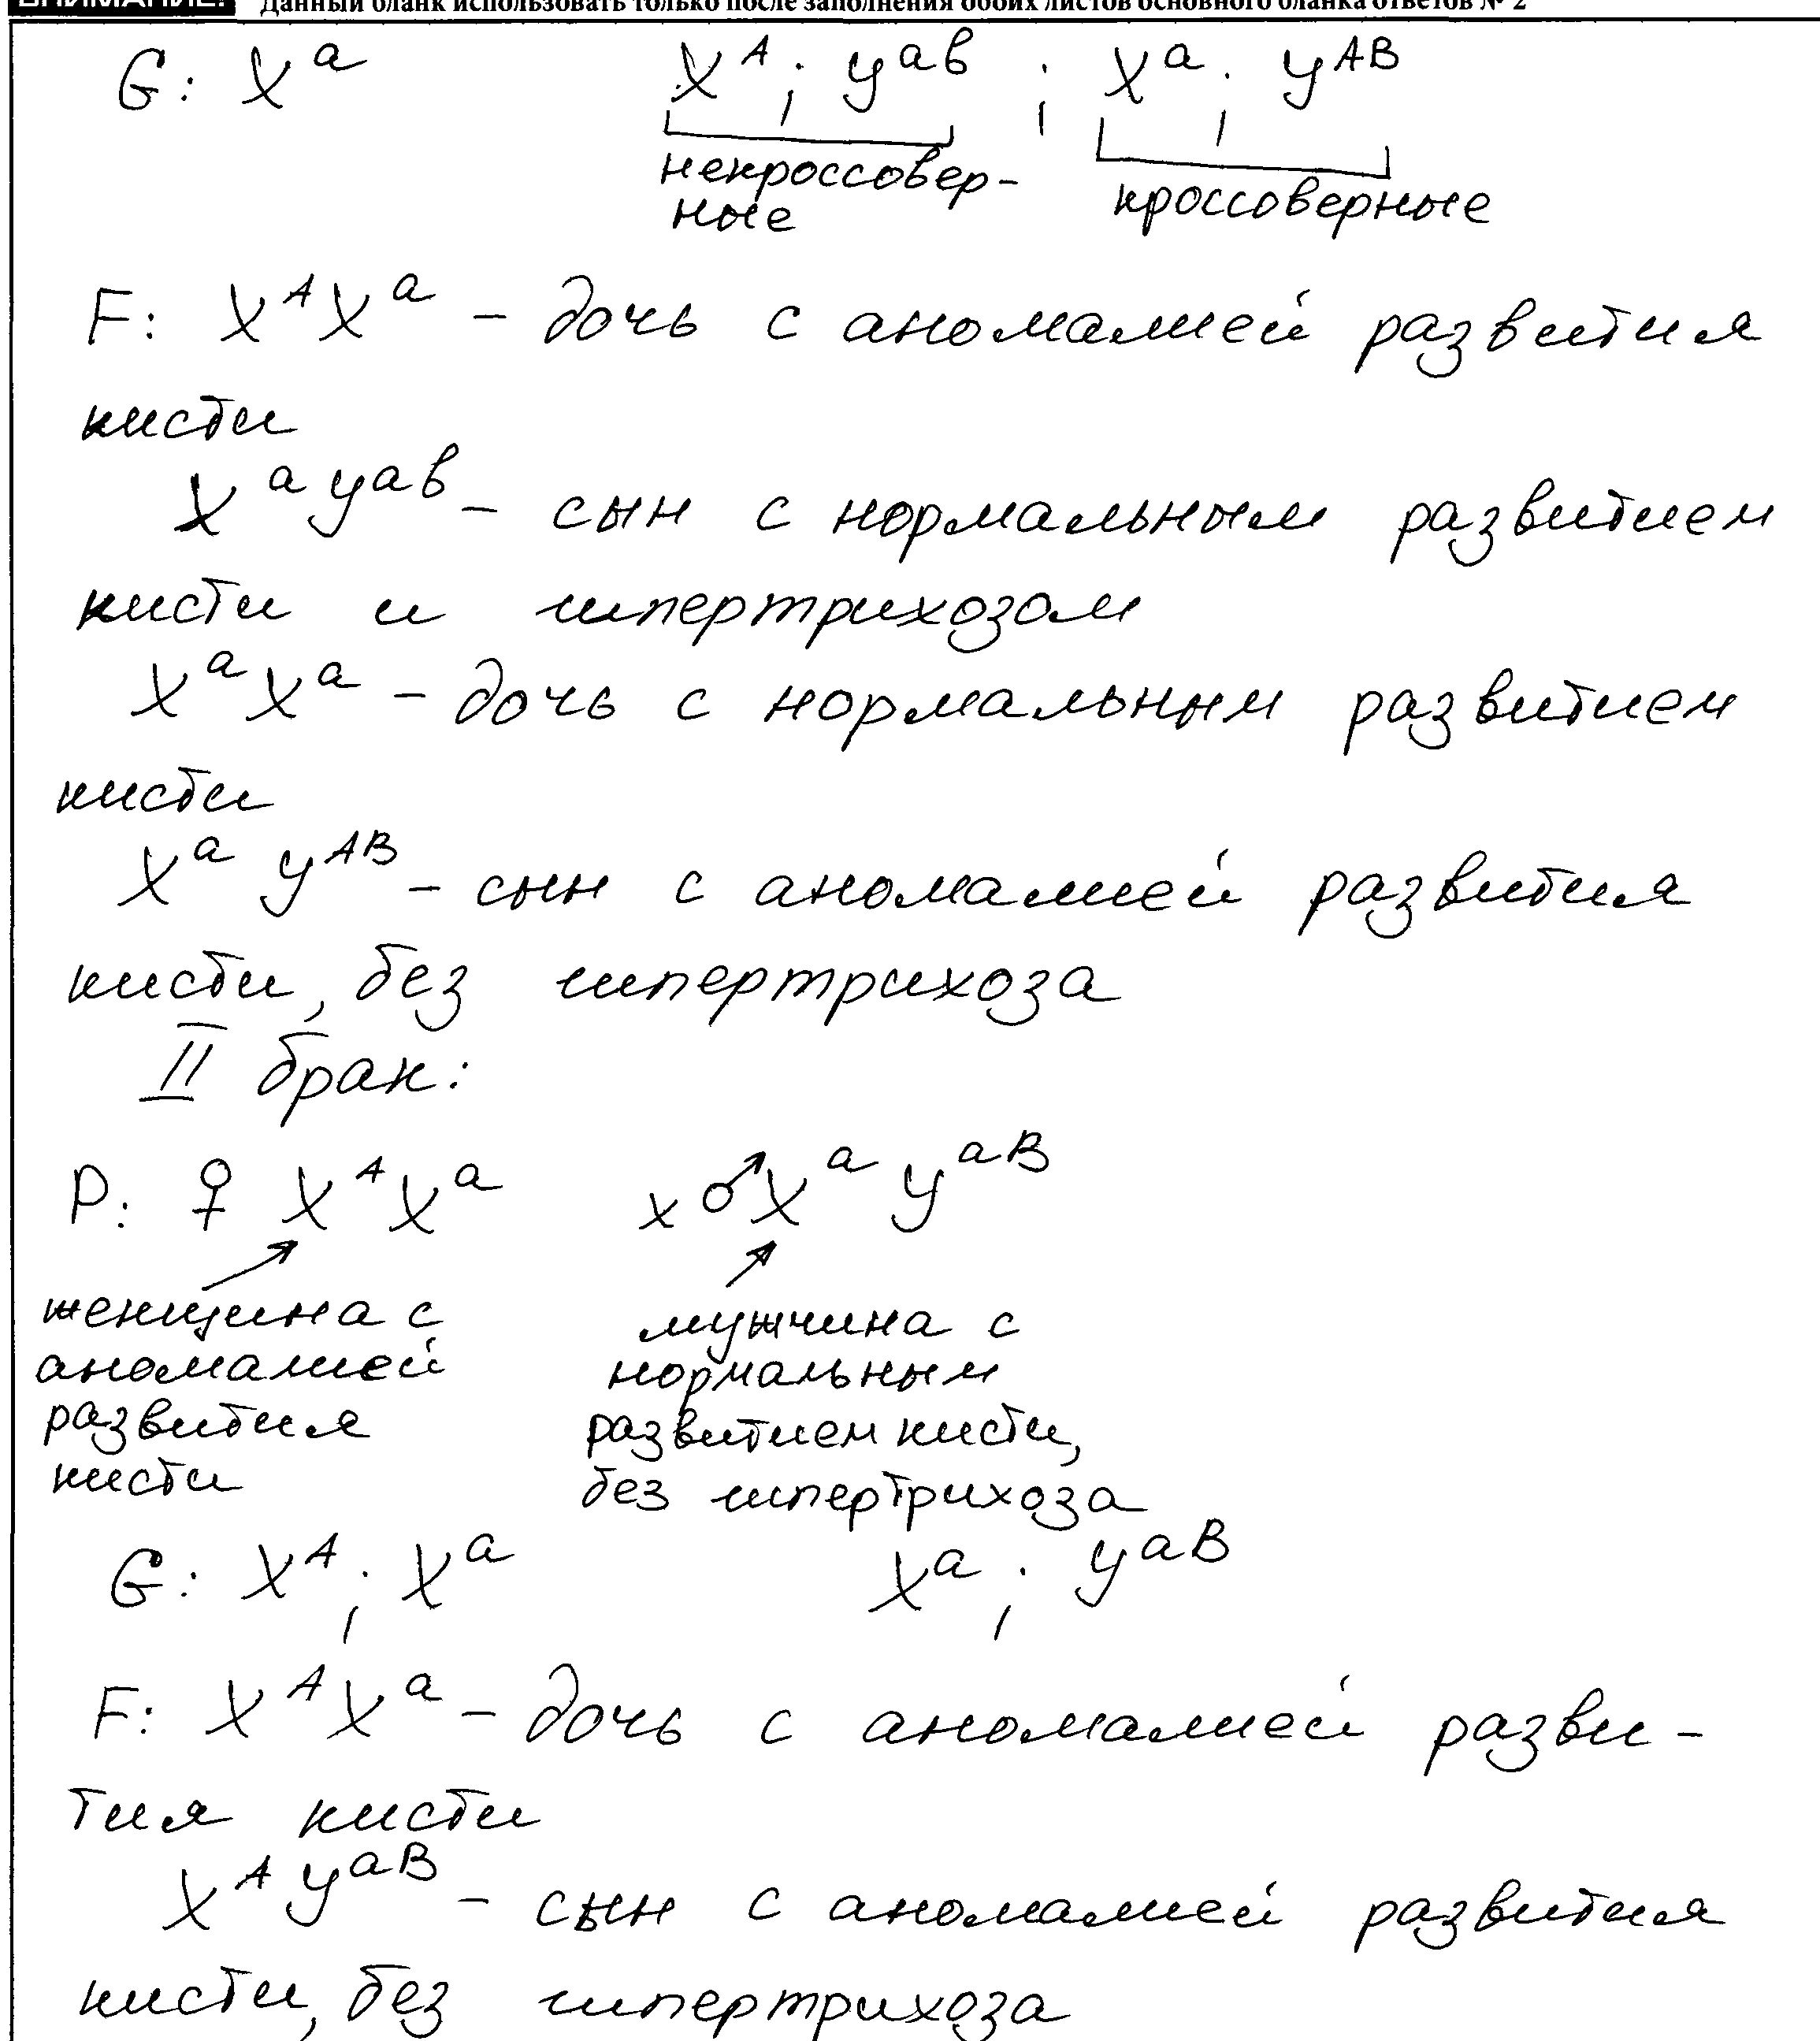 ВНИМАНИЕ! Данный бланк использовать только после заполнения обоих листов основного бланка ответов № 2
G: X^a X^A; y^aв; X^a; y^AB
некроссовер-
ные кроссоверные
F: X^A X^a – дочь с аномалией развития
кисти
X^a y^aв – сын с нормальным развитием
кисти и гипертрихозом
X^a X^a – дочь с нормальным развитием
кисти
X^a y^AB – сын с аномалией развития
кисти, без гипертрихоза
II брак:
P: ♀ X^A X^a x ♂ X^a y^aB
женщина с мужчина с
аномалией нормальным
развития развитием кисти,
кисти без гипертрихоза
G: X^A; X^a X^a; y^aB
F: X^A X^a – дочь с аномалией разви-
тия кисти
X^A y^aB – сын с аномалией развития
кисти, без гипертрихоза